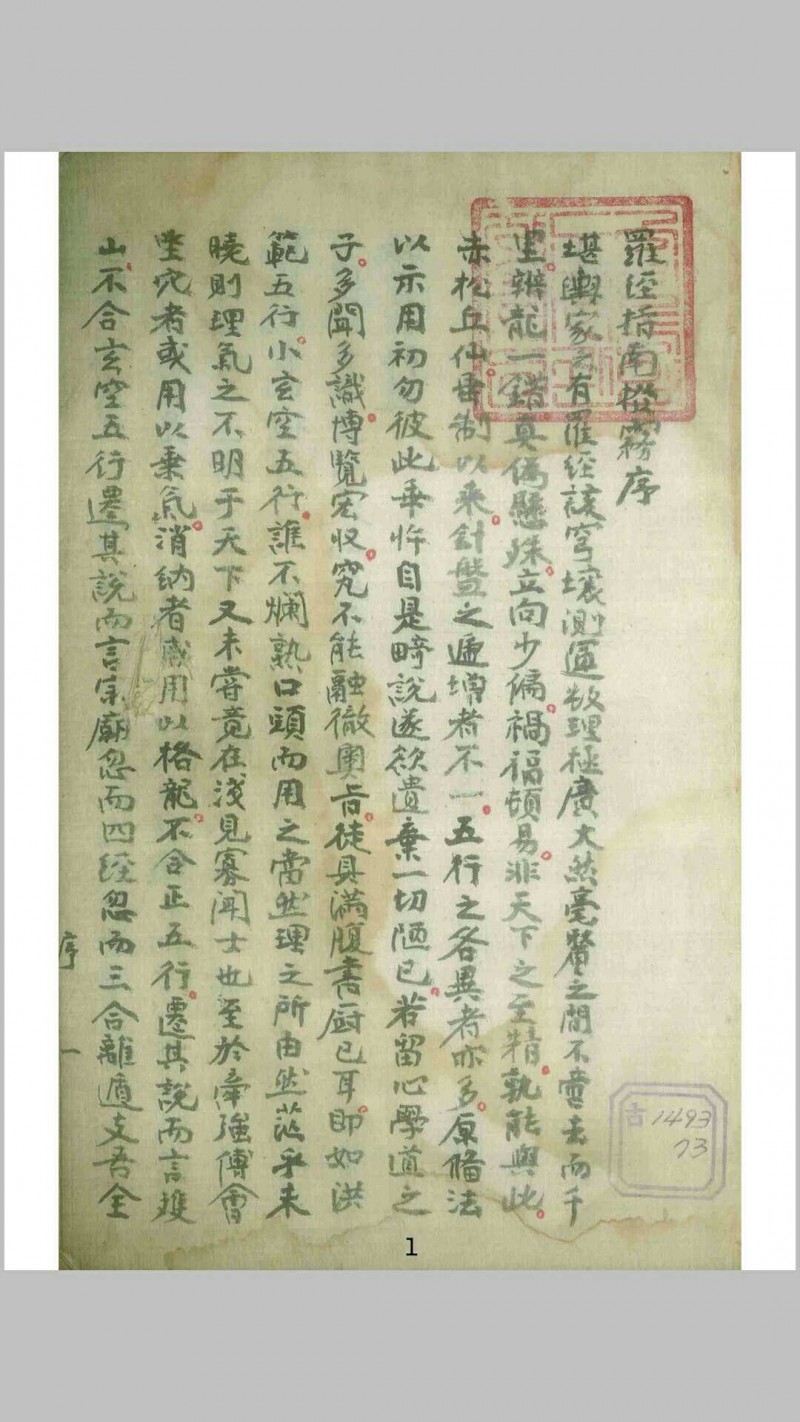 羅經指南撥霧序
堪輿家之有羅經該穹壤測運數理極廣大然毫釐之間不啻去而千
里辨龍一錯真偽懸殊立向少偏禍福頓易非天下之至精孰能與此
赤松丘仙舊制以來針盤之遞增者不一五行之各異者亦多原備法
以示用初勿彼此乖忤自是畸說遂欲遺棄一切陋已若留心學道之
子多聞多識博覽宏收究不能融徹奧旨徒具滿腹書厨已耳即如洪
範五行小玄空五行誰不爛熟口頭而用之當然理之所由然茫乎未
曉則理氣之不明于天下又未嘗竟在淺見寡聞士也至於牽強傅會
坐穴者或用以乘氣消納者或用以格龍不合正五行遷其說而言雙
山不合玄空五行遷其說而言宗廟忽而四經忽而三合離遁支吾全
序
一
古1493
73
1